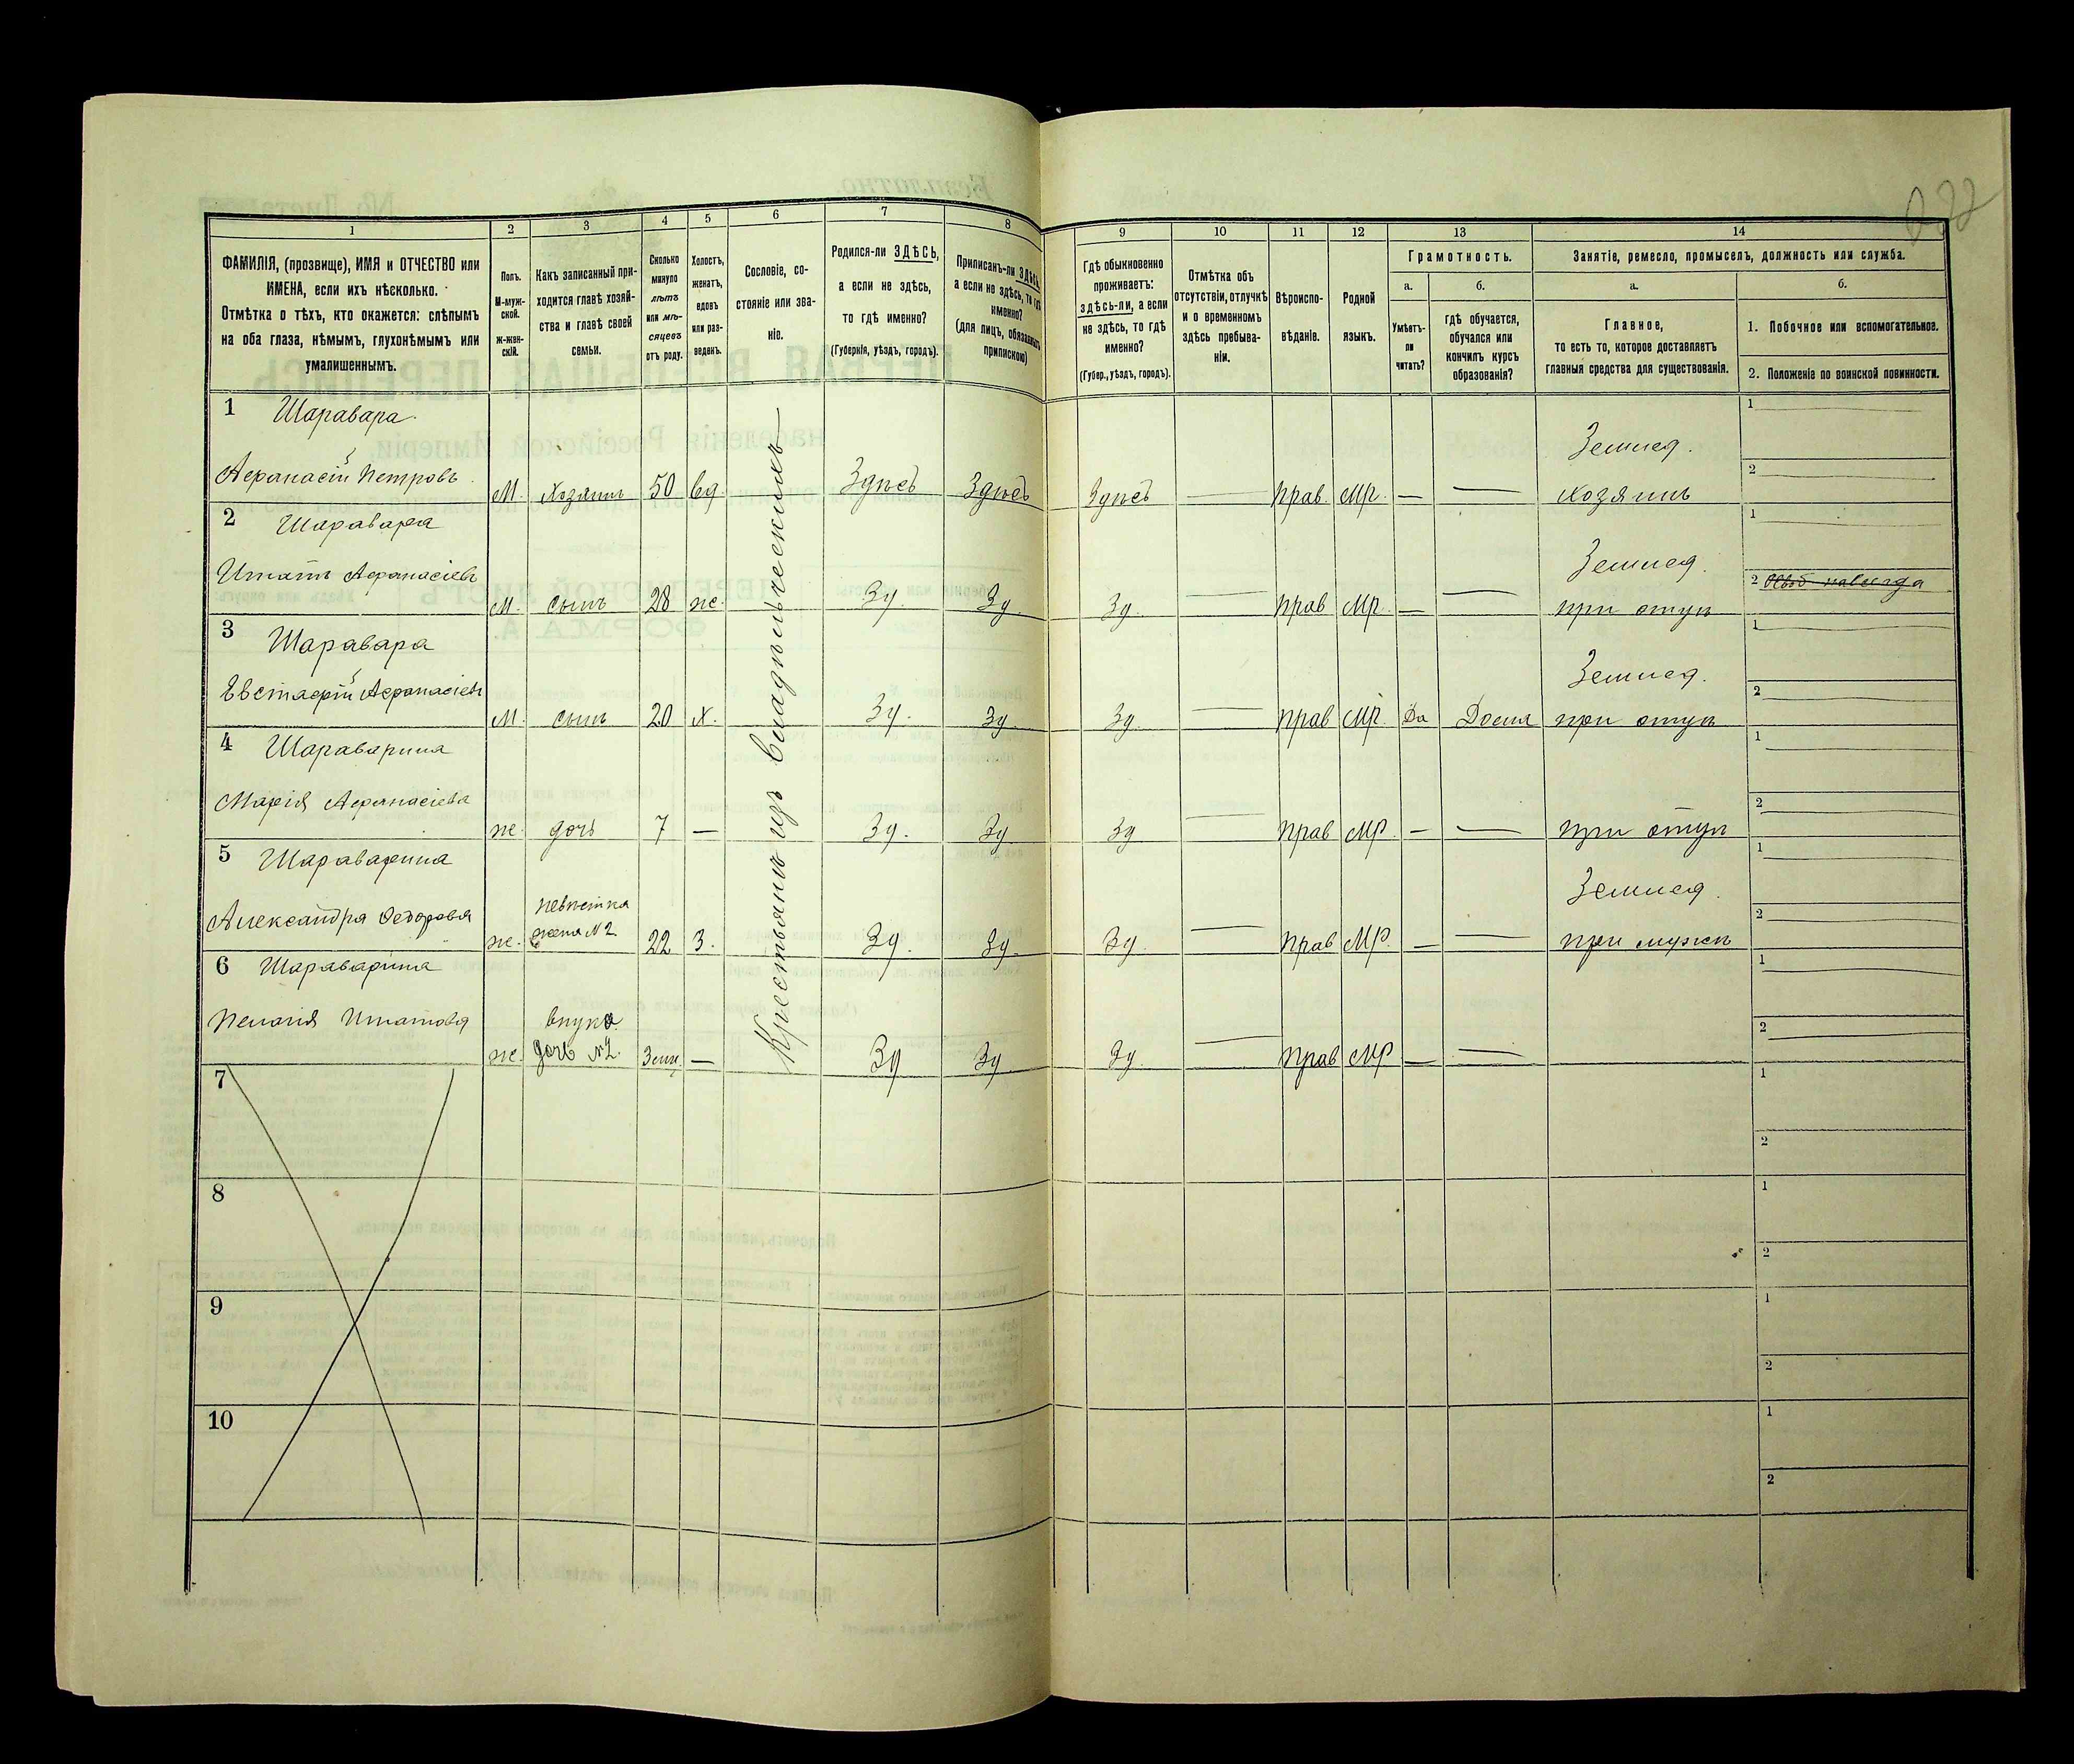 1
2
3
4
5
6
7
8
9
10
11
12
13
14
ФАМИЛІЯ, (прозвище), ИМЯ и ОТЧЕСТВО или
ИМЕНА, если ихъ нѣсколько.
Отмѣтка о тѣхъ, кто окажется: слѣпымъ
на оба глаза, нѣмымъ, глухонѣмымъ или
умалишеннымъ.
Полъ.
М-муж-
ской.
Ж-жен-
скій.
Какъ записанный при-
ходится главѣ хозяй-
ства и главѣ своей
семьи.
Сколько
минуло
лѣтъ
или мѣ-
сяцевъ
отъ роду.
Холостъ,
женатъ,
вдовъ
или раз-
веденъ.
Сословіе, со-
стояніе или зва-
ніе.
Родился-ли ЗДѢСЬ,
а если не здѣсь,
то гдѣ именно?
(Губернія, уѣздъ, городъ).
Приписанъ-ли ЗДѢСЬ,
а если не здѣсь, то гдѣ
именно?
(для лицъ, обязанныхъ
припискою)
Гдѣ обыкновенно
проживаетъ:
здѣсь-ли, а если
не здѣсь, то гдѣ
именно?
(Губер., уѣздъ, городъ).
Отмѣтка объ
отсутствіи, отлучкѣ
и о временномъ
здѣсь пребыва-
ніи.
Вѣроиспо-
вѣданіе.
Родной
языкъ.
Грамотность.
а.
Умѣетъ-
ли
читать?
б.
гдѣ обучается,
обучался или
кончилъ курсъ
образованія?
Занятіе, ремесло, промыселъ, должность или служба.
а.
Главное,
то есть то, которое доставляетъ
главныя средства для существованія.
б.
1. Побочное или вспомогательное.
2. Положеніе по воинской повинности.
Крестьянъ изъ владѣльческихъ
1 Шаравара Землед. 1
Афанасій Петровъ М. хозяинъ 50 вд. Здѣсь Здѣсь Здѣсь — прав. Мр. — — хозяинъ 2
2 Шаравара Землед. 1
Игнатъ Афанасіевъ М. сынъ 28 ж. Зд. Зд. Зд. — прав Мр. — — при отцѣ 2
3 Шаравара Землед. 1
Евстафій Афанасіевъ М. сынъ 20 х. Зд. Зд. Зд. — прав Мр. Да Дома при отцѣ 2
4 Шараварина 1
Марія Афанасіева ж. дочь 7 — Зд. Зд Зд — прав Мр. — — при отцѣ 2
5 Шараварина Землед. 1
невѣстка
Александра Федорова ж. жена №2 22 З. Зд. Зд. Зд. — прав Мр. — — при мужѣ 2
6 Шараварина 1
внука
Пелагія Игнатова ж. дочь №2. 3 мц. — Зд Зд Зд. — прав Мр — — 2
7 1
2
8 1
2
9 1
2
10 1
2